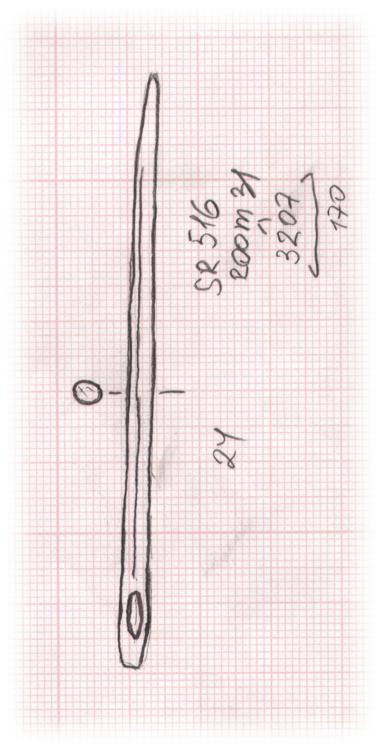 SR 516
200m 31
3207
170
24